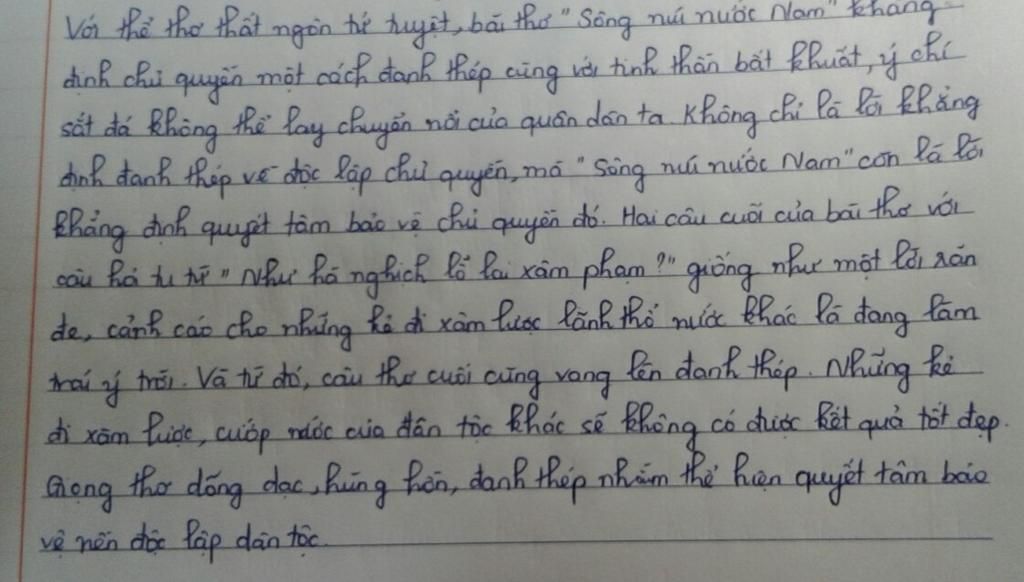 Với thể thơ thất ngôn tứ tuyệt, bài thơ "Sông núi nước Nam" khẳng
định chủ quyền một cách đanh thép cùng với tinh thần bất khuất, ý chí
sắt đá không thể lay chuyển nổi của quân dân ta. Không chỉ là lời khẳng
định đanh thép về độc lập chủ quyền, mà "Sông núi nước Nam" còn là lời
khẳng định quyết tâm bảo vệ chủ quyền đó. Hai câu cuối của bài thơ với
câu hỏi tu từ "Như hà nghịch lỗ lai xâm phạm?" giống như một lời răn
đe, cảnh cáo cho những kẻ đi xâm lược lãnh thổ nước khác là đang làm
trái ý trời. Và từ đó, câu thơ cuối cùng vang lên đanh thép. Những kẻ
đi xâm lược, cướp nước của dân tộc khác sẽ không có được kết quả tốt đẹp.
Giọng thơ dõng dạc, hùng hồn, đanh thép nhằm thể hiện quyết tâm bảo
vệ nền độc lập dân tộc.